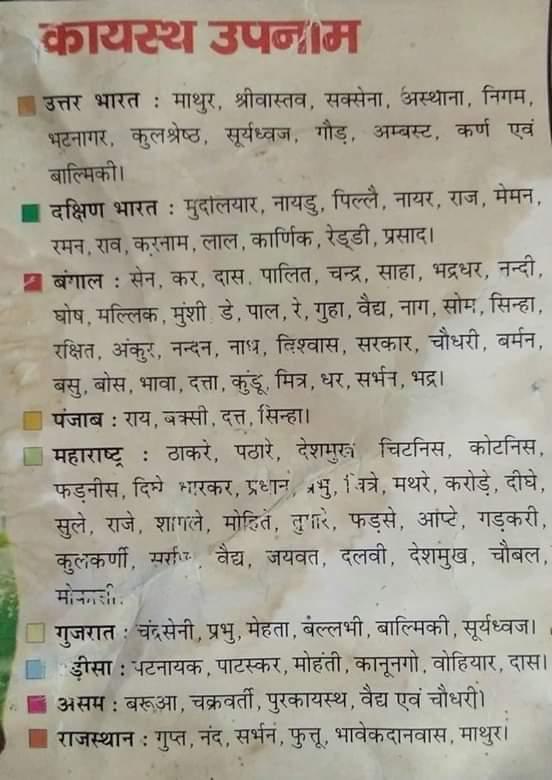 कायस्थ उपनाम
उत्तर भारत : माथुर, श्रीवास्तव, सक्सेना, अस्थाना, निगम,
भटनागर, कुलश्रेष्ठ, सूर्यध्वज, गौड़, अम्बस्ट, कर्ण एवं
बाल्मिकी।
दक्षिण भारत : मुदलियार, नायडु, पिल्लै, नायर, राज, मेमन,
रमन, राव, करनाम, लाल, कार्णिक, रेड्डी, प्रसाद।
बंगाल : सेन, कर, दास, पालित, चन्द्र, साहा, भद्रधर, नन्दी,
घोष, मल्लिक, मुंशी डे, पाल, रे, गुहा, वैद्य, नाग, सोम, सिन्हा,
रक्षित, अंकुर, नन्दन, नाथ, विश्वास, सरकार, चौधरी, बर्मन,
बसु, बोस, भावा, दत्ता, कुंडू, मित्र, धर, सर्भन, भद्र।
पंजाब : राय, बक्सी, दत्त, सिन्हा।
महाराष्ट्र : ठाकरे, पठारे, देशमुख चिटनिस, कोटनिस,
फड़नीस, दिघे प्रधान, प्रभु, चित्रे, मथरे, करोड़े, दीघे,
सुले, राजे, शागले, मोहिते, फड़से, आप्टे, गड़करी,
कुलकर्णी, वैद्य, जयवत, दलवी, देशमुख, चौबल,
गुजरात : चंद्रसेनी, प्रभु, मेहता, बल्लभी, बाल्मिकी, सूर्यध्वज।
ड़ीसा : पटनायक, पाटस्कर, मोहंती, कानूनगो, वोहियार, दास।
असम : बरूआ, चक्रवर्ती, पुरकायस्थ, वैद्य एवं चौधरी।
राजस्थान : गुप्त, नंद, सर्भन, फुत्तू, भावेकदानवास, माथुर।